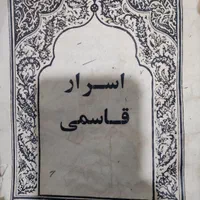 اسرار
قاسمی